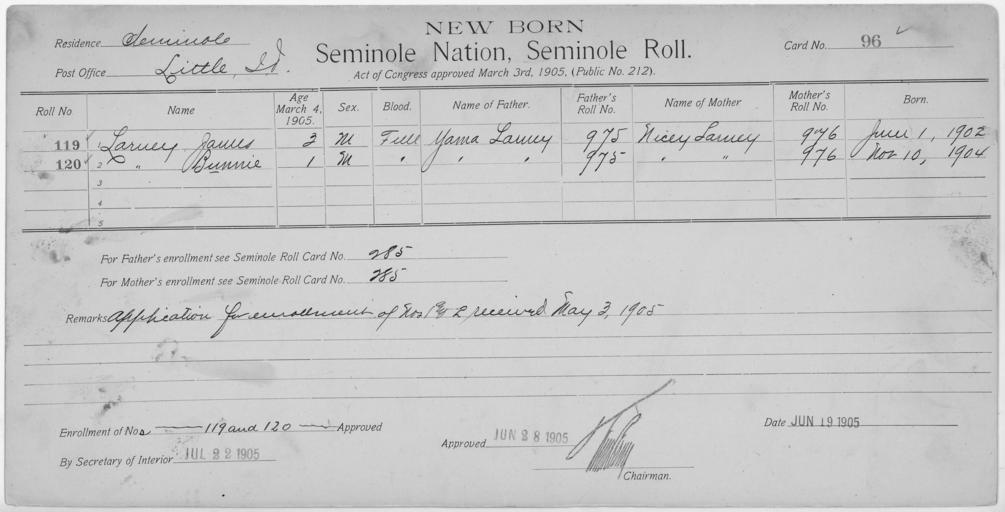 NEW BORN
Residence Seminole
Seminole Nation, Seminole Roll.
Card No. 96
Post Office Little, I.T.
Act of Congress approved March 3rd, 1905. (Public No. 212).
Roll No Name Age March 4, 1905. Sex. Blood. Name of Father. Father's Roll No. Name of Mother Mother's Roll No. Born.
119 Larney James 3 M Full Yama Larney 975 Nicey Larney 976 June 1, 1902
120 2 " Bunnie 1 M " " " 975 " " 976 Nov 10, 1904
3
4
5
For Father's enrollment see Seminole Roll Card No. 285
For Mother's enrollment see Seminole Roll Card No. 285
Remarks Application for enrollment of Nos 1 & 2 received May 3, 1905
Enrollment of Nos 119 and 120 Approved
By Secretary of Interior JUL 22 1905
Approved JUN 28 1905
Chairman.
Date JUN 19 1905